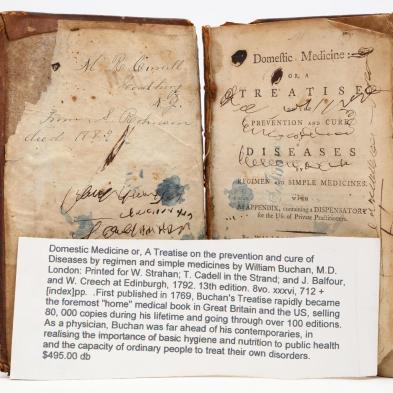 M
From S. Robinson
died 1882
Domestic Medicine:
OR, A
TREATISE
PREVENTION AND CURE
DISEASES
REGIMEN AND SIMPLE MEDICINES.
WITH
AN APPENDIX, containing a DISPENSATORY
for the Use of Private Practitioners.
Domestic Medicine or, A Treatise on the prevention and cure of
Diseases by regimen and simple medicines by William Buchan, M.D.
London: Printed for W. Strahan; T. Cadell in the Strand; and J. Balfour,
and W. Creech at Edinburgh, 1792. 13th edition. 8vo. xxxvi, 712 +
[index]pp. .First published in 1769, Buchan's Treatise rapidly became
the foremost "home" medical book in Great Britain and the US, selling
80, 000 copies during his lifetime and going through over 100 editions.
As a physician, Buchan was far ahead of his contemporaries, in
realising the importance of basic hygiene and nutrition to public health
and the capacity of ordinary people to treat their own disorders.
$495.00 db